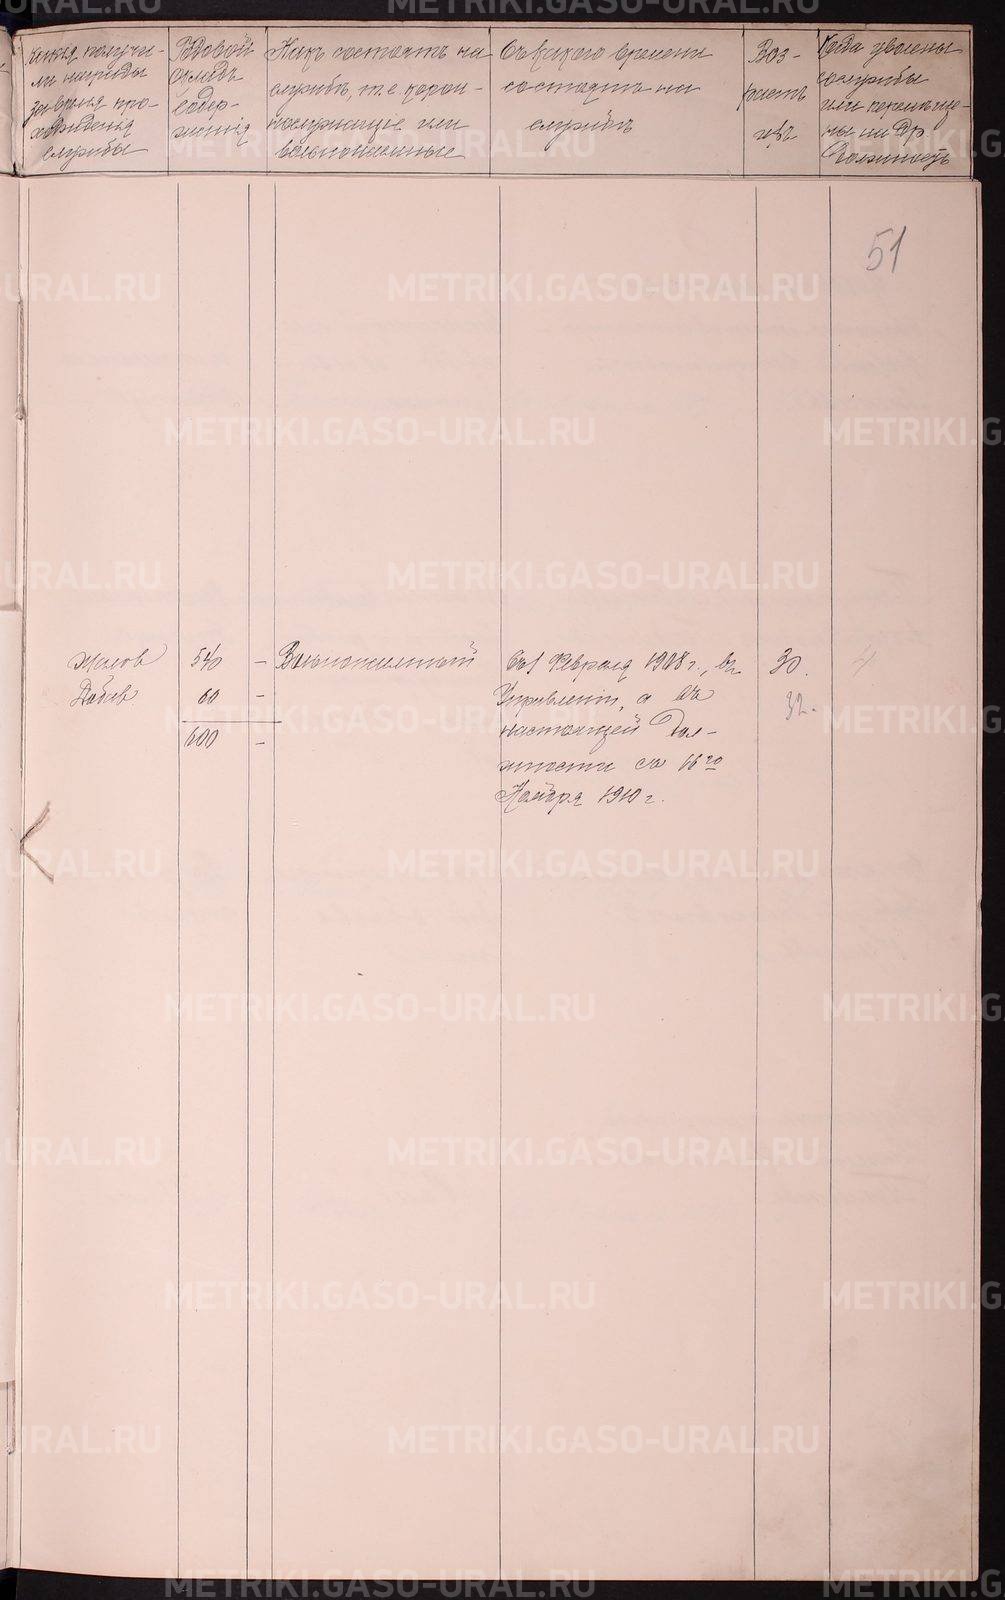 Какія получи-
ли награды
за время про-
хожденія
службы
Годовой
окладъ
содер-
жанія
Какъ состоятъ на
службѣ, т.е. корон-
нослужащіе или
вольнонаемные
Съ какого времени
состоятъ на
службѣ
Воз-
растъ
ихъ
Когда уволены
со службы
или перемѣще-
ны на др.
должность
51
Жалов 540 — Вольнонаемный Съ 1 Февраля 1908 г., въ 30.
Добав 60 — Управленіи, а въ 32.
600 — настоящей дол-
жности съ 16го
Ноября 1910 г.
METRIKI.GASO-URAL.RU